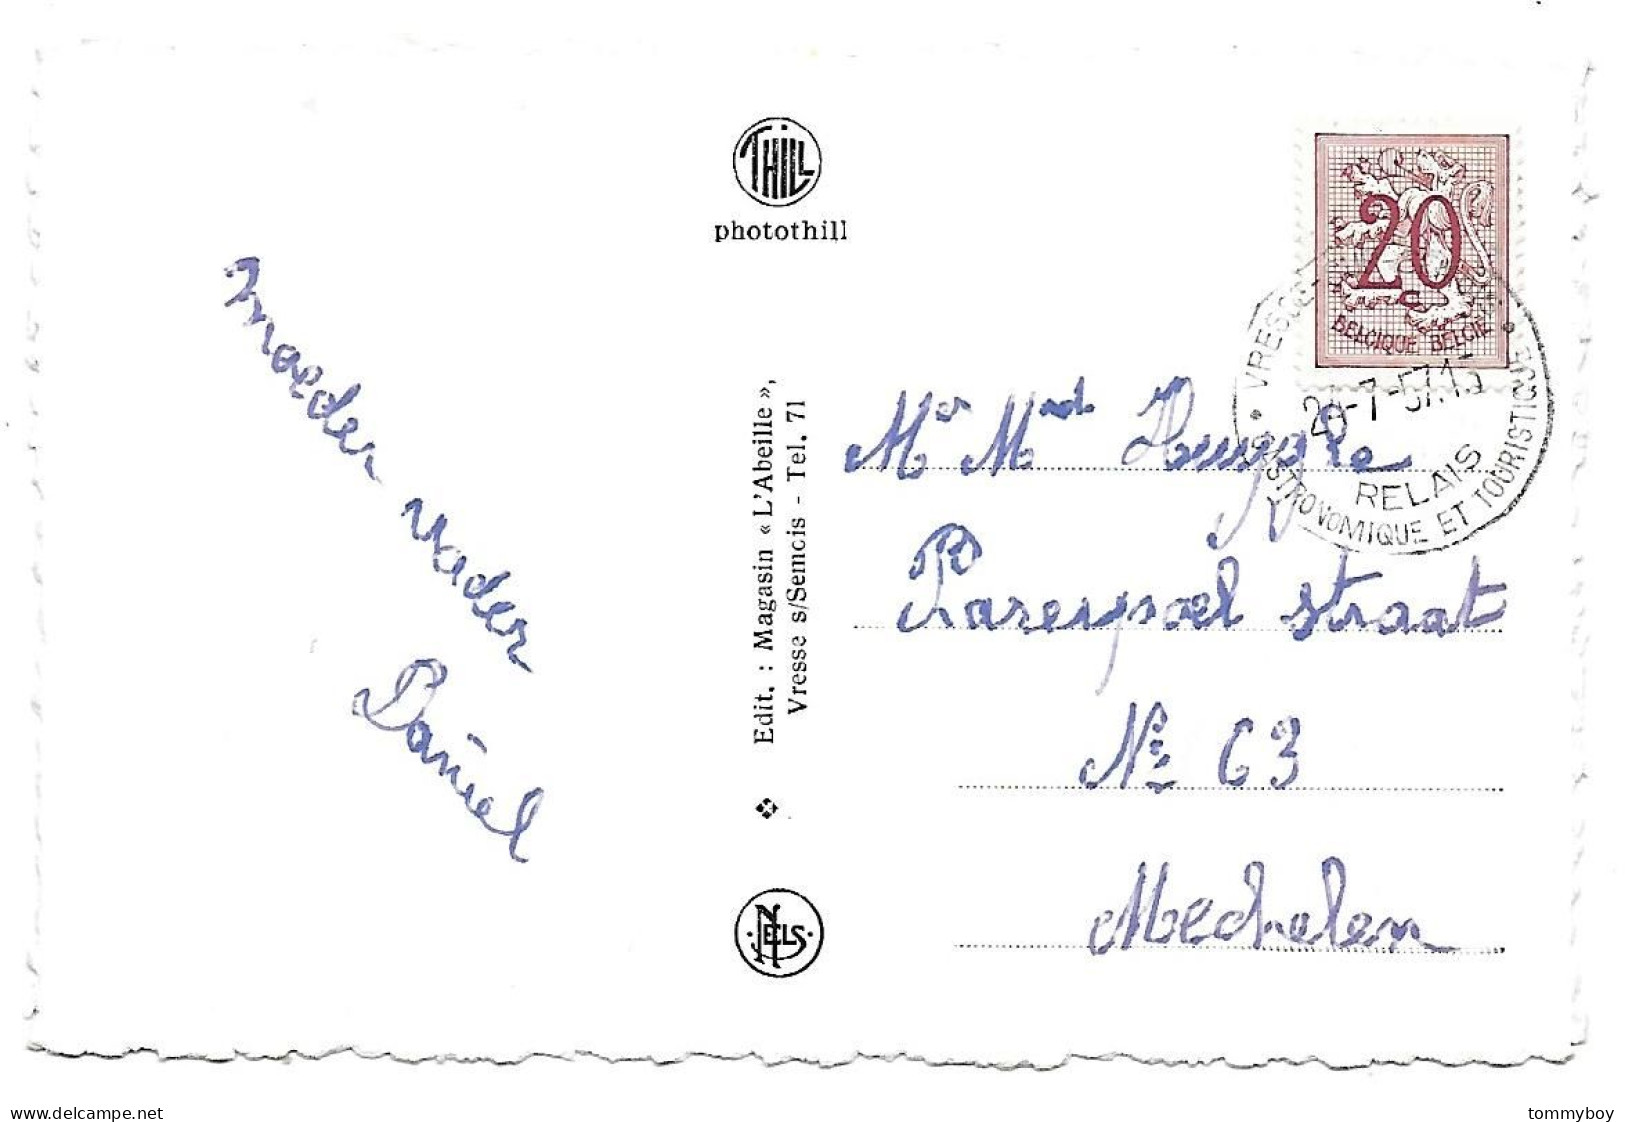 THILL
photothill
moeder vader
Daniel
Edit. : Magasin « L'Abeille »,
Vresse s/Semois - Tel. 71
NELS
20
BELGIQUE BELGIË
VRESSE
-7-57
RELAIS
GASTRONOMIQUE ET TOURISTIQUE
Mr Mad
straat
No 63
Mechelen
delcampe.net
tommyboy